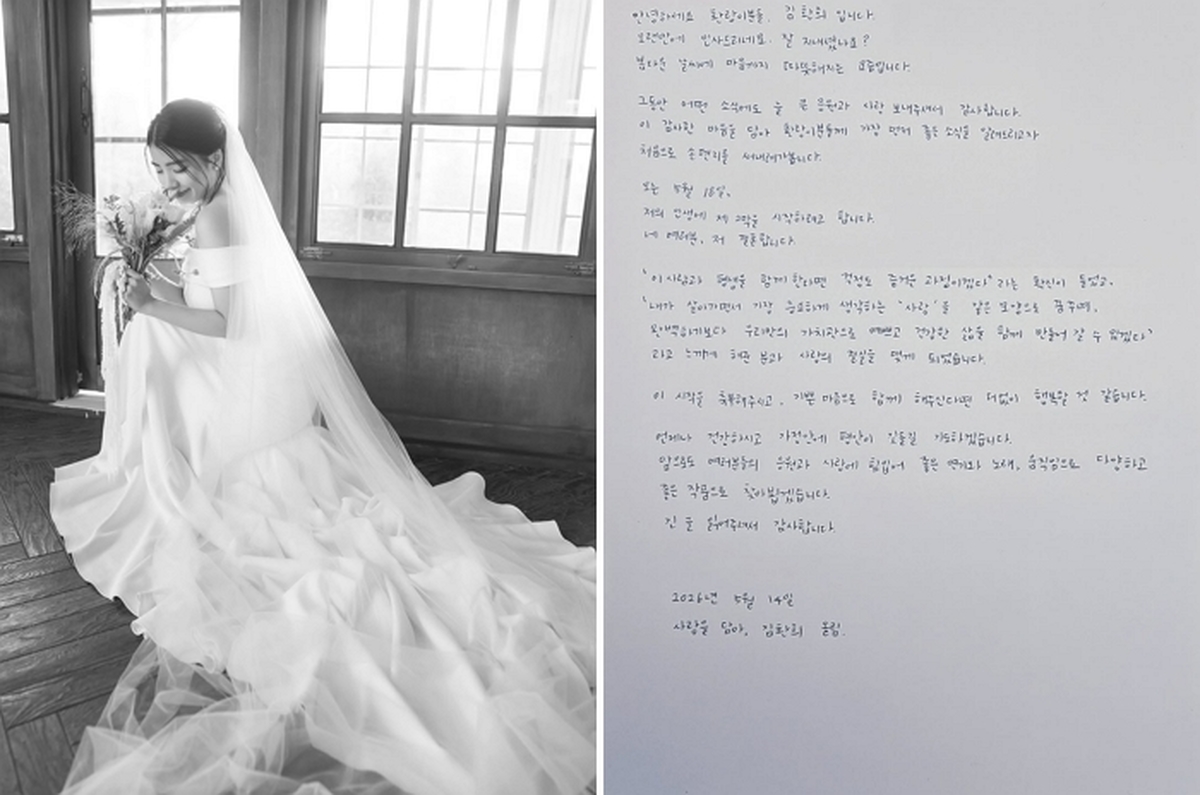 안녕하세요 환랑이분들. 김환희 입니다.
오랜만에 인사드리네요. 잘 지내셨나요?
봄다운 날씨에 마음까지 따뜻해지는 요즘입니다.
그동안 어떤 소식에도 늘 큰 응원과 사랑 보내주셔서 감사합니다.
이 감사한 마음을 담아 환랑이분들께 가장 먼저 좋은 소식을 알려드리고자
처음으로 손편지를 써내려가봅니다.
오는 5월 18일,
저의 인생에 제 2막을 시작하려고 합니다.
네 여러분, 저 결혼합니다.
"이 사람과 평생을 함께 한다면 걱정도 즐거운 과정이겠다"라는 확신이 들었고,
"내가 살아가면서 가장 중요하게 생각하는 '사랑'을 같은 모양으로 꿈꾸며,
완벽하기보다 우리만의 가치관으로 예쁘고 건강한 삶을 함께 만들어 갈 수 있겠다"
라고 느끼게 해준 분과 사랑의 결실을 맺게 되었습니다.
이 시작을 축복해주시고, 기쁜 마음으로 함께 해주신다면 더없이 행복할 것 같습니다.
언제나 건강하시고 가정안에 평안이 깃들길 기도하겠습니다.
앞으로도 여러분들의 응원과 사랑에 힘입어 좋은 연기와 노래, 움직임으로 다양하고
좋은 작품으로 찾아뵙겠습니다.
긴 글 읽어주셔서 감사합니다.
2026년 5월 14일
사랑을 담아, 김환희 올림.